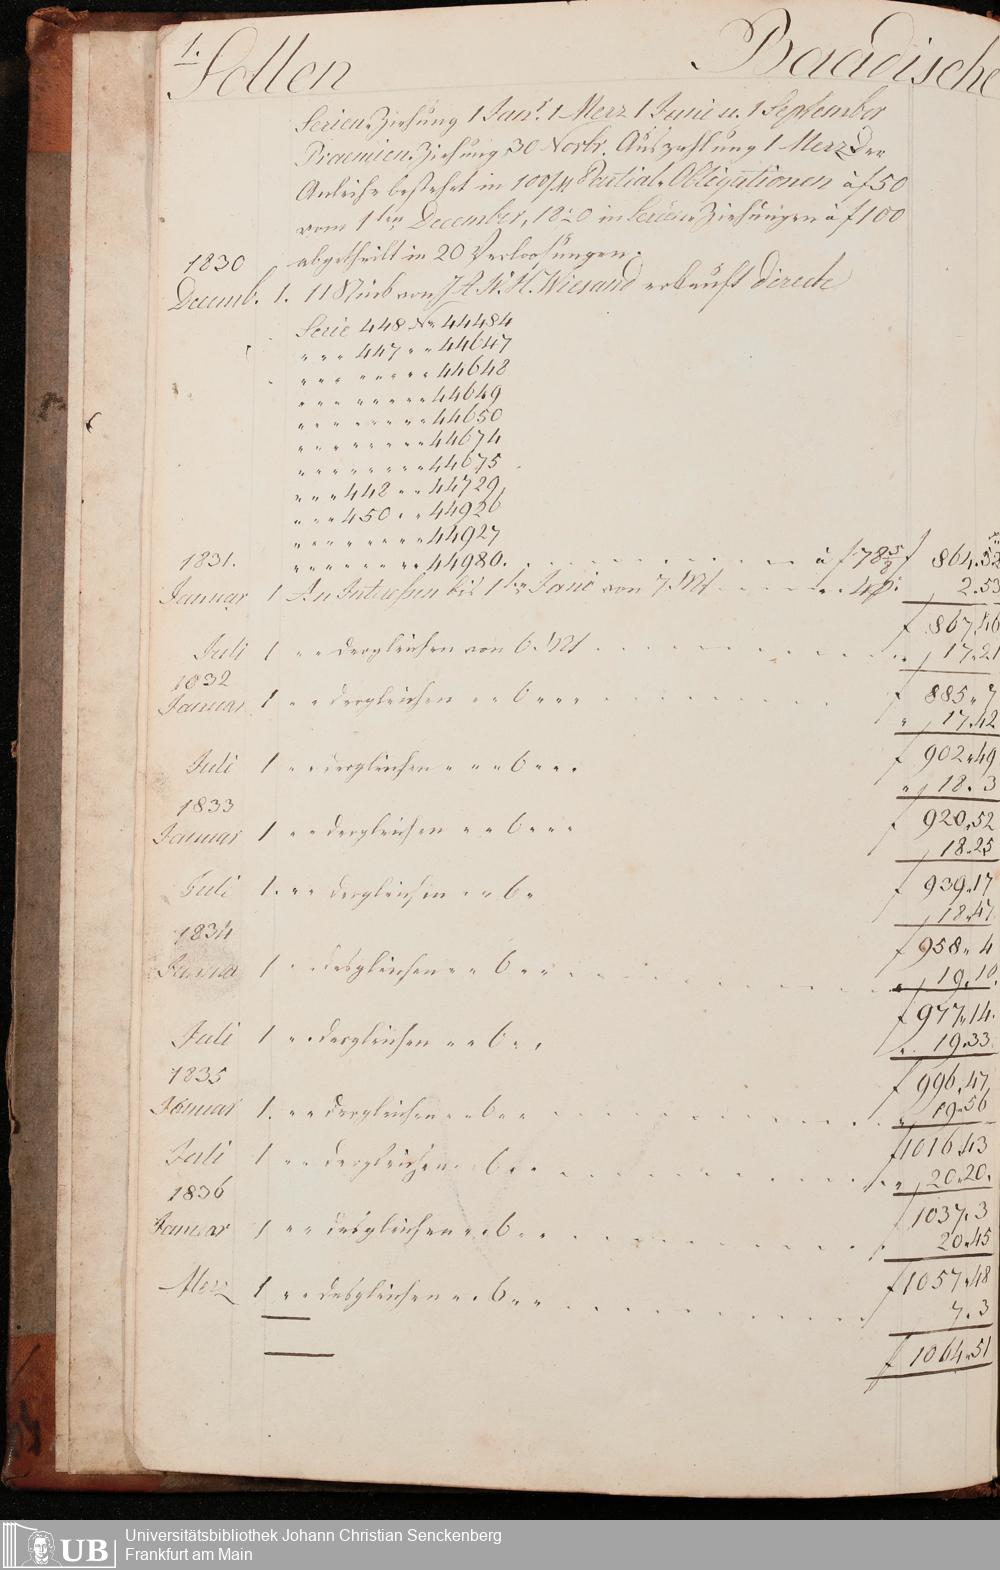 1.
Sollen Baadische
Serien Ziehung 1 Janr. 1 Merz 1 Junii u. 1 September
Praemien Ziehung 30 Novbr. Auszahlung 1 Merz Der
Anleihe bestehet in 100/M Partial Obligationen à f 50
vom 1ten December, 1820 in Serien Ziehungen à f 100
abgetheilt in 20 Verloosungen.
1830
Decemb. 1. 11 Stück von J A N. H. Wiesand erkauft direck
Serie 448 No 44484
" " " 447 " " 44647
" " " " " " " " 44648
" " " " " " " " 44649
" " " " " " " " 44650
" " " " " " " " 44674
" " " " " " " " 44675
" " " 448 " " 44729
" " " 450 " " 44926
" " " " " " " " 44927
" " " " " " " " 44980. à f 78 5/8 f 864.52
1831.
Januar 1 An Interessen bis 1ten von 7. Mt 4 p. 2.53
f 867.46
Juli 1 " " dergleichen von 6. Mt " 17.21
1832 f 885.7
Januar 1 " " dergleichen " " 6 " " " " 17.42
f 902.49
Juli 1 " " dergleichen " " " 6 " " " " 18.3
1833 f 920.52
Januar 1 " " dergleichen " " 6 " " " 18.25
f 939.17
Juli 1. " " dergleichen " " 6 " 18.47
1834 f 958.4
Janua 1 " " desgleichen " " 6 " " " 19.10.
f 977.14.
Juli 1 " " desgleichen " " 6 " " " 19.33.
1835 f 996.47
Januar 1. " " dergleichen " " 6 " " " 19.56
f 1016.43
Juli 1 " " dergleichen " " 6 " " " 20.20.
1836 f 1037.3
Januar 1 " " desgleichen " " 6 " " " 20.45
f 1057.48
Merz 1 " " desgleichen " " 6 " " 7.3
f 1064.51
UB Universitätsbibliothek Johann Christian Senckenberg
Frankfurt am Main